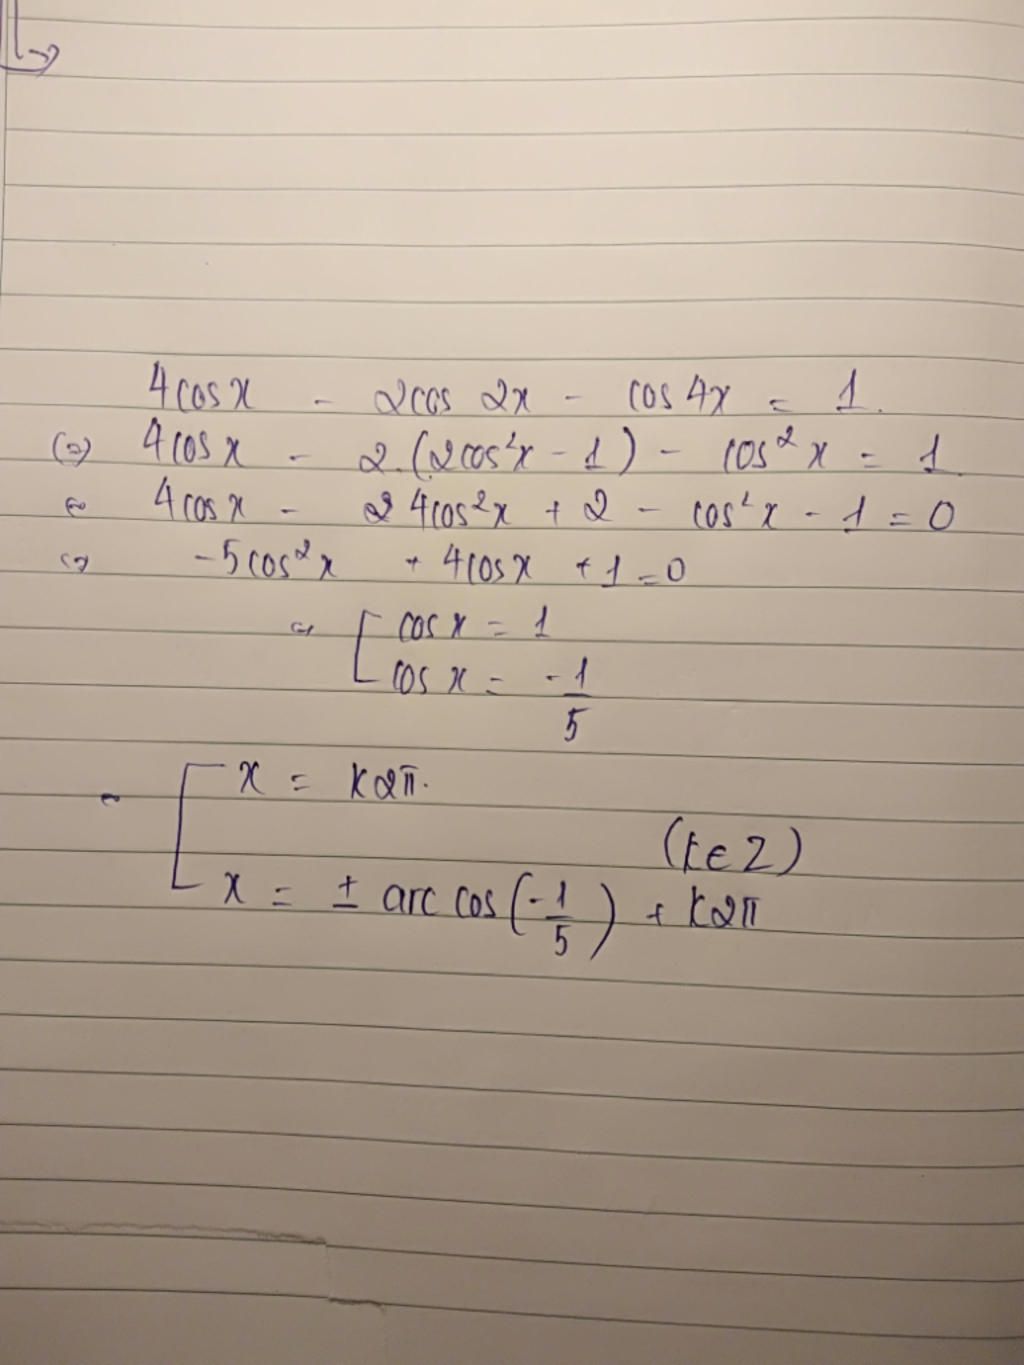 4cosx - 2cos 2x - cos4x = 1.
(=) 4cosx - 2.(2cos²x - 1) - cos²x = 1.
(=) 4cosx - 4cos²x + 2 - cos²x - 1 = 0
(=) -5cos²x + 4cosx + 1 = 0
(=) [ cosx = 1
cosx = -1/5
[ x = k2π.
(k∈Z)
x = ± arc cos(-1/5) + k2π